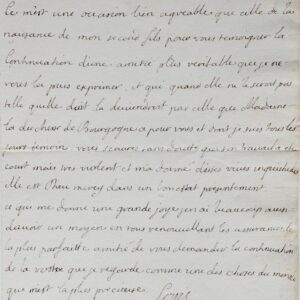 Ce m'est une occasion bien agreable que celle de la
naissance de mon second fils pour vous temoigner la
continuation d'une amitie plus veritable que je ne
vous la puis exprimer et que quand elle ne le seroit pas
telle quelle doit la deviendroit par celle que Madame
la duchesse de Bourgogne a pour vous et dont je suis tous les
jours temoin vous scaurez sans doute que son travail a été
court mais violent et m'a donné d'assez vives inquietudes
elle est Dieu mercy dans un bon estat presentement
ce qui me donne une grande joye j'en ai beaucoup aussi
d'avoir un moyen en vous renouvellant les assurances de
la plus parfaite amitié de vous demander la continuation
de la vostre que je regarde comme une des choses du monde
qui m'est la plus precieuse
Louis